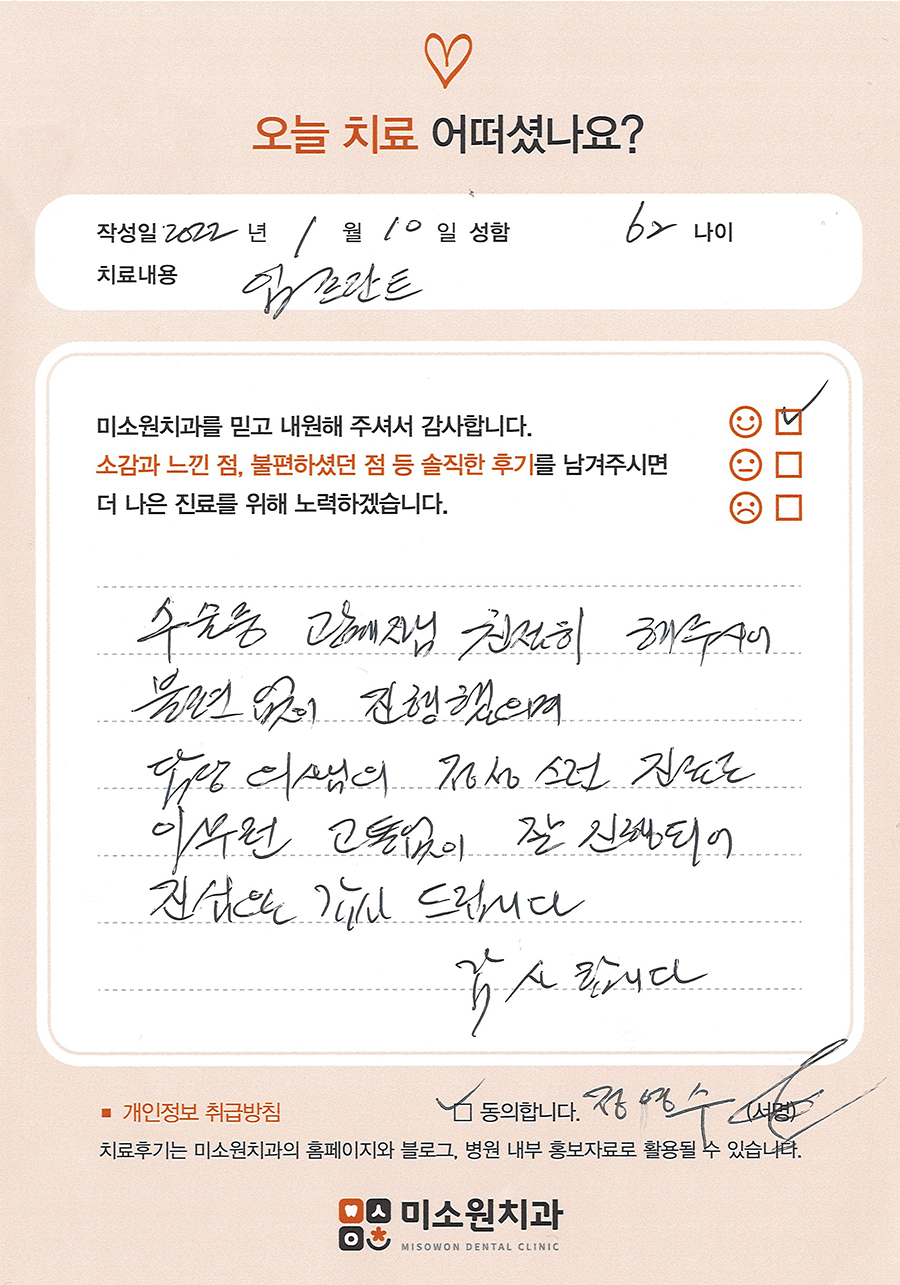 오늘 치료 어떠셨나요?
작성일 2022 년 1 월 10 일 성함 62 나이
치료내용 임프란트
미소원치과를 믿고 내원해 주셔서 감사합니다.
소감과 느낀 점, 불편하셨던 점 등 솔직한 후기를 남겨주시면
더 나은 진료를 위해 노력하겠습니다.
수술중 관계자님 친절히 해주시어
불편 없이 진행했으며
담당 의사님의 정성스런 진료로
아무런 고통없이 잘 진행되어
진심으로 감사 드립니다
감사합니다
개인정보 취급방침
동의합니다. 정영수 (서명)
치료후기는 미소원치과의 홈페이지와 블로그, 병원 내부 홍보자료로 활용될 수 있습니다.
미소원치과
MISOWON DENTAL CLINIC